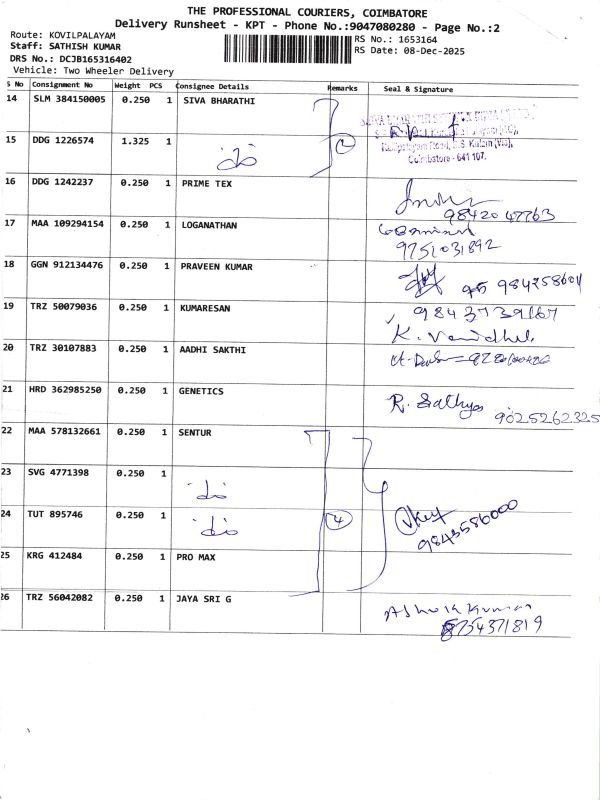 THE PROFESSIONAL COURIERS, COIMBATORE
Delivery Runsheet - KPT - Phone No.:9047080280 - Page No.:2
Route: KOVILPALAYAM
RS No.: 1653164
Staff: SATHISH KUMAR
RS Date: 08-Dec-2025
DRS No.: DCJB165316402
Vehicle: Two Wheeler Delivery
S No Consignment No Weight PCS Consignee Details Remarks Seal & Signature
14 SLM 384150005 0.250 1 SIVA BHARATHI
15 DDG 1226574 1.325 1
Coimbatore - 641 107.
16 DDG 1242237 0.250 1 PRIME TEX
98420 47763
17 MAA 109294154 0.250 1 LOGANATHAN
9751031892
18 GGN 912134476 0.250 1 PRAVEEN KUMAR
19 TRZ 50079036 0.250 1 KUMARESAN
9843739167
20 TRZ 30107883 0.250 1 AADHI SAKTHI
21 HRD 362985250 0.250 1 GENETICS
R. Sathya 9025262325
22 MAA 578132661 0.250 1 SENTUR
23 SVG 4771398 0.250 1
24 TUT 895746 0.250 1
4
9843586000
25 KRG 412484 0.250 1 PRO MAX
26 TRZ 56042082 0.250 1 JAYA SRI G
Ashok Kumar
8754371819